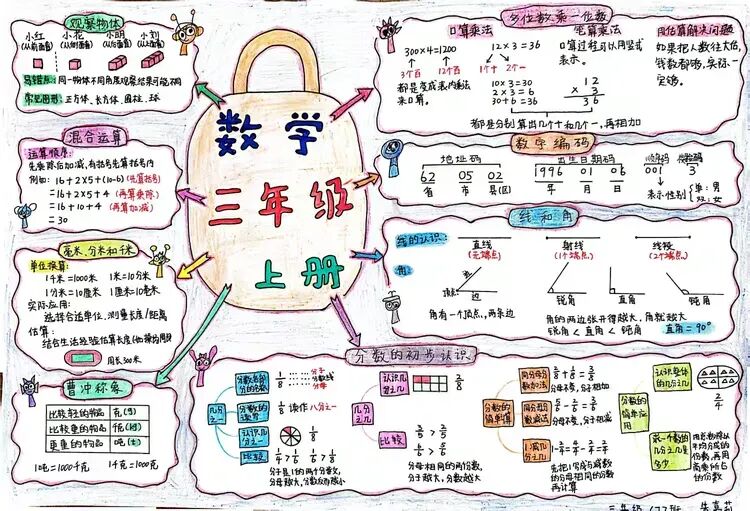 数学
三年级
上册
观察物体
小红 小花 小明 小刘
(从前面看) (从侧面看) (从后面看) (从上面看)
易错点：同一物体不同角度观察结果可能不同
常见图形：正方体、长方体、圆柱、球
混合运算
运算顺序：
先乘除后加减，有括号先算括号内
例如：16+2×5+(10-6) (先算括号)
=16+2×5+4 (再算乘除)
=16+10+4 (再算加减)
=30
毫米、分米和千米
单位换算：
1千米=1000米 1米=10分米
1分米=10厘米 1厘米=10毫米
实际应用：
选择合适单位，测量长度/距离
估算：
结合生活经验估算长度
周长300米
曹冲称象
比较轻的物品 克(g)
比较重的物品 千克(kg)
更重的物品 吨(t)
1吨=1000千克 1千克=1000克
多位数乘一位数
口算乘法 笔算乘法
300×4=1200 12×3=36
3个百 12个百 1个十 2个一
都是变成表内乘法
来口算。
10×3=30
2×3=6
30+6=36
口算过程可以用竖式
表示。
12
× 3
36
都是分别算出几个十和几个一，再相加
用估算解决问题
如果把人数往大估，
钱数都够，实际一
定够。
数字编码
地址码 出生日期码 顺序码 校验码
62 05 02 1996 01 06 001 3
省 市 县(区) 年 月 日 表示性别 单：男
双：女
线和角
线的认识： 直线 射线 线段
(无端点) (1个端点) (2个端点)
角：
顶点 边 边
锐角 直角 钝角
角有一个顶点，两条边
角的两边张开得越大，角就越大
锐角<直角<钝角 直角=90°
分数的初步认识
几分之一
分数各部分的名称 1/8 分子 分数线 分母
分数的读写 1/8 读作 八分之一
认识几分之一 1/8
比较 1/4>1/6 1/6>1/8
分子是1的两个分数，
分母越大，分数反而越小
几分之几
认识几分之几 3/8
比较 3/5>2/5 5/6>3/6
分母相同的两份数，
分子越大，分数越大
分数的简单计算
同分母分数加法
分母不变，分子相加
同分母分数减法
分母不变，分子相减
1减几分之几
先把1写成与减数
的分母相同的分数
再计算
分数的简单应用
认识整体的几分之几 2/4
求一个数的几分之几是多少
三年级